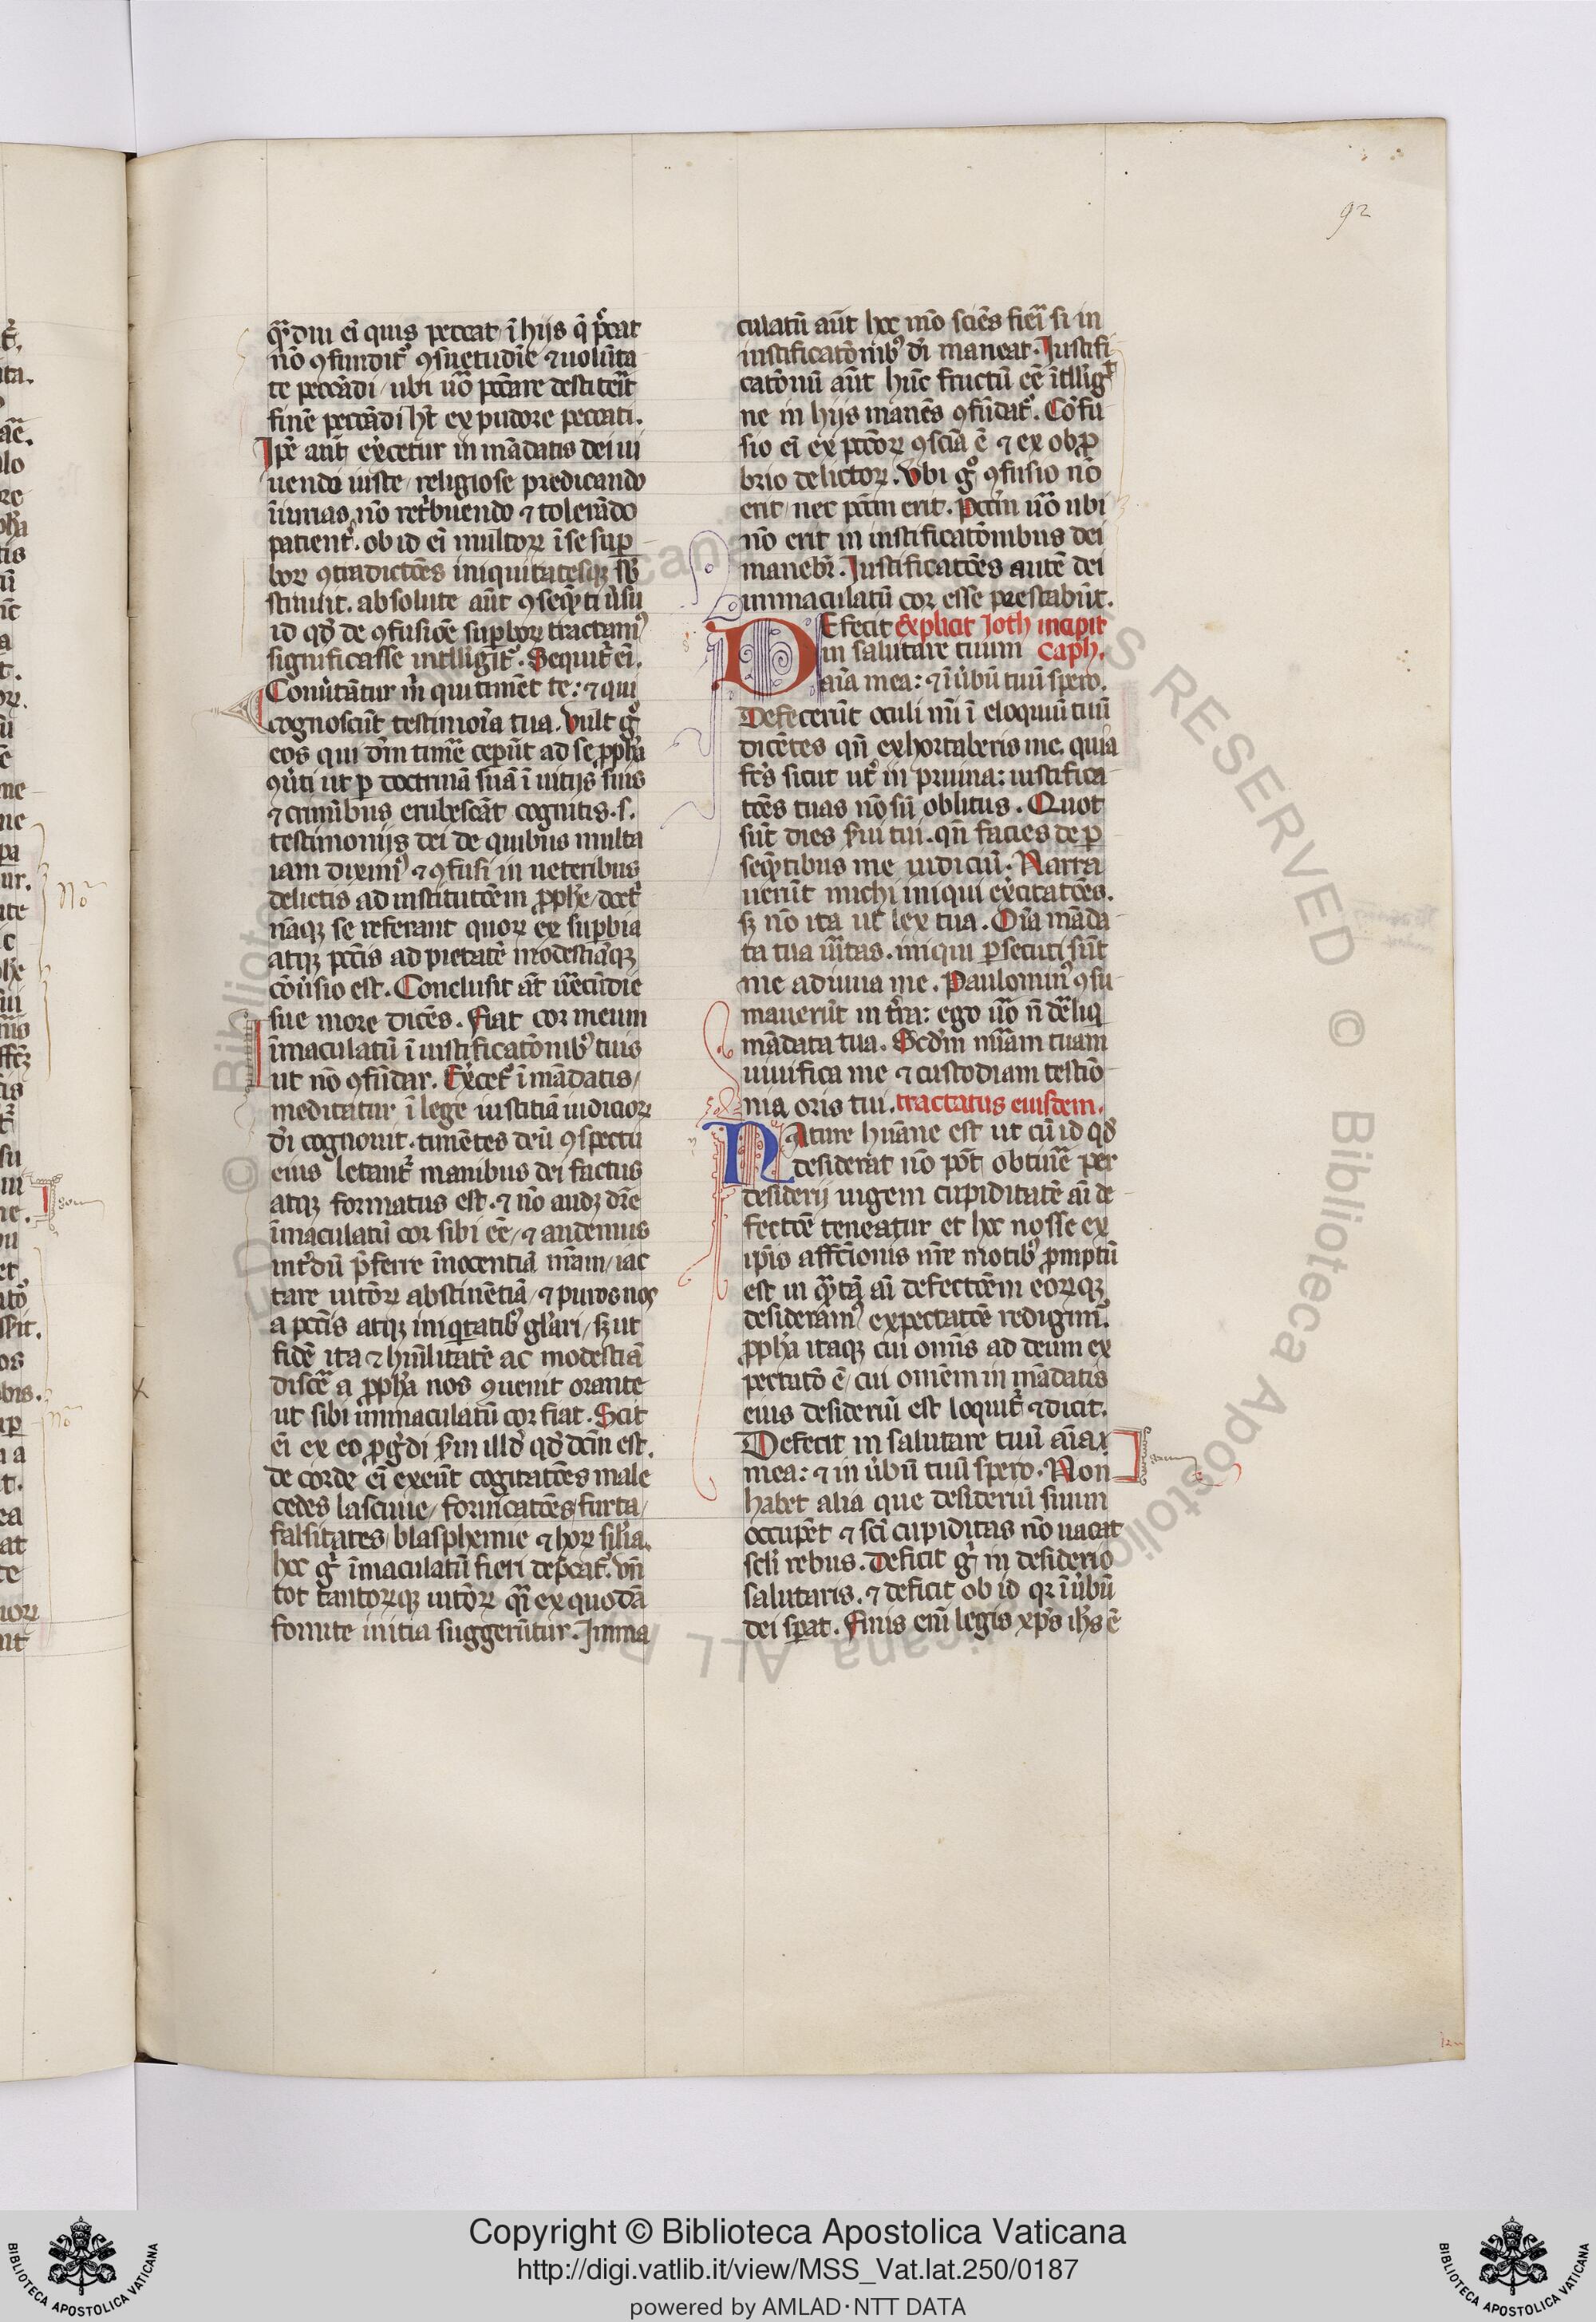 92
qᷓdiu eī quis peccat / ī hijs q̄ pͨcat
nō ꝯfundit᷑ ꝯsuetudīe ⁊ uolūta
te peccādi / ubi uō pccāre destiterit
finē peccādi hꝫ ex pudore peccati.
Ipē aūt exͨcetur in mādatis dei ui
uendo iuste / religiose predicando
iniurias nō retͥbuendo ⁊ tolerādo
patient᷑. ob id eī multoꝝ ī se suꝑ
boꝝ ꝯtradictōes iniquitatesqꝫ sb̄
stinuit. absolute aūt ꝯseqꝫti ūsu
id qd̄ de ꝯfusiōe suꝑboꝝ tractamꝰ
significasse intlligit᷑. Sequit᷑ eī.
Conūtātur m̄ qui timēt te: ⁊ qui
cognoscūt testimoīa tua. Vult gͦ
eos qui dn̄m timē ceperūt ad se ꝓph̄a
ꝯūti ut ꝑ doctrinā suā ī uitijs suis
⁊ criminibus erubescāt cognitis. s.
testimonijs dei de quibus multa
iam diximꝰ ⁊ ꝯfusi in ueteribus
delictis ad institutōem ꝓph̄e / docet
nāqꝫ se referant quoꝝ ex suꝑbia
atqꝫ pctīs ad pietatē modestiāqꝫ
cōūsio est. Conclusit aūt uecūdie
sue more dicēs. Fiat cor meum
īmaculatū ī iustificatōnibꝰ tuis
ut nō ꝯfūdar. Exͨcet᷑ ī mādatis /
meditatur ī lege iustitiā iudicioꝝ
dī cognouit. timētes deū ꝯspectu
eius letant᷑ manibus dei factus
atqꝫ formatus est. ⁊ nō audꝫ dr̄e
īmaculatū cor sibi eē / ⁊ audemus
intͥdū p̄ferre īnocentiā nr̄am / iac
tare uitōꝝ abstinētiā / ⁊ puros nos
a pctīs atqꝫ iniqͥtatibꝰ glari / sꝫ ut
fidē ita ⁊ hūilitatē ac modestiā
discē a ꝓph̄a nos ꝯuenit orante
ut sibi immaculatū cor fiat. Scit
eī ex eo ꝓgͥdi s̄m illd̄ qd̄ dcm̄ est.
de corde eī exeūt cogitatōes male
cedes lasciuie / fornicatōes / furta /
falsitates / blasphemie ⁊ hoꝝ sil̄ia.
hec gͦ īmaculatū fieri dep̄cat᷑. vn̄
tot tantoꝝqꝫ uitōꝝ qᷓ ex quodā
fomite initia suggerūtur. Imma
culatū aūt hoc mō sciēs fieri si in
iustificatōnibꝰ dī maneat. Iustifi
catōnū aūt hūc fructū eē ītllīgᷓ
ne in hijs manēs ꝯfūdat᷑. Cōfu
sio eī ex pccōꝝ ꝯsciā ē ⁊ ex obꝓ
brio delictoꝝ. Vbi gͦ ꝯfusio nō
erit / nec pctm̄ erit. Pctm̄ uō ubi
nō erit in iustificatōnibus dei
manebit᷑. Iustificatōes autē dei
immaculatū cor esse prestabūt.
DEfecit explicit Ioth incipit
in salutare tuum Caph.
aīa mea: ⁊ ī ūbū tuū spero.
Defecerūt oculi mī ī eloquiū tuū
dicētes qn̄ exhortaberis me. quia
fcs̄ sicut ut᷑ in pruina: iustifica
tōes tuas nō sū oblitus. Quot
sūt dies s̄ui tui. qn̄ facies de ꝑ
seqꝫtibus me iudiciū. Narra
uerūt michi iniqui exͨcitatōes.
sꝫ nō ita ut lex tua. Oīa māda
ta tua uītas. iniqui ꝑsecuti sūt
me adiuua me. Paulominꝰ ꝯsu
mauerūt in tr̄ra: ego uō n̄ dereliq
mādata tua. Scd̄m mīam tuam
uiuifica me ⁊ custodiam testīo
nia oris tui. tractatus eiusdem.
NAture hūane est ut cū id qd̄
desiderat nō pōt obtinē per
desiderij uigem cupiditatē aī de
fectōe teneatur et hoc nosse ex
ipīs affcionis nr̄e motibꝰ ꝓmptū
est in qᷓtā aī defectōem eoꝝqꝫ
desideramꝰ expectatōe redigimꝰ.
ꝓph̄a itaqꝫ cui omīs ad deum ex
pectatō ē / cui omēm in mādatis
eius desideriū est loquit᷑ ⁊ dicit.
Defecit in salutare tuū aīa
mea: ⁊ in ūbū tuū spero. Non
habet alia que desideriū suum
occupēt ⁊ scī cupiditas nō uacat
scl̄i rebus. Deficit gͦ in desiderio
salutaris. ⁊ deficit ob id qr ī ūbū
dei sꝑat. Finis enī legis xp̄s ih̄s ē
Copyright © Biblioteca Apostolica Vaticana
http://digi.vatlib.it/view/MSS_Vat.lat.250/0187
powered by AMLAD·NTT DATA
BIBLIOTECA APOSTOLICA VATICANA
BIBLIOTECA APOSTOLICA VATICANA